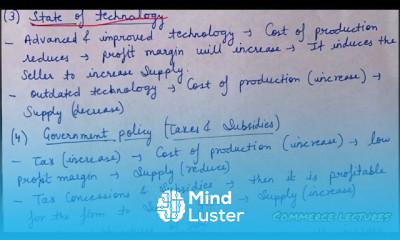 (3) State of technology
- Advanced & improved technology → Cost of production
reduces → profit margin will increase → It induces the
Seller to increase Supply.
- Outdated technology → Cost of production (increase) →
Supply (decrease)
(4) Government policy (Taxes & Subsidies)
- Tax (increase) → Cost of production (increase) → low
profit margin → Supply (reduce)
- Tax Concessions & Subsidies → then it is profitable
for the firm to → Supply (increase)
Mind
Luster
COMMERCE LECTURES